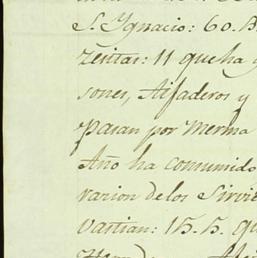 S. Ygnacio: 60. B.
zeitas: 11 que ha
sones, Aifaderos y
pasan por Merma
Año ha consumido
varion de los Sirvie
vastian: 15. B. qu